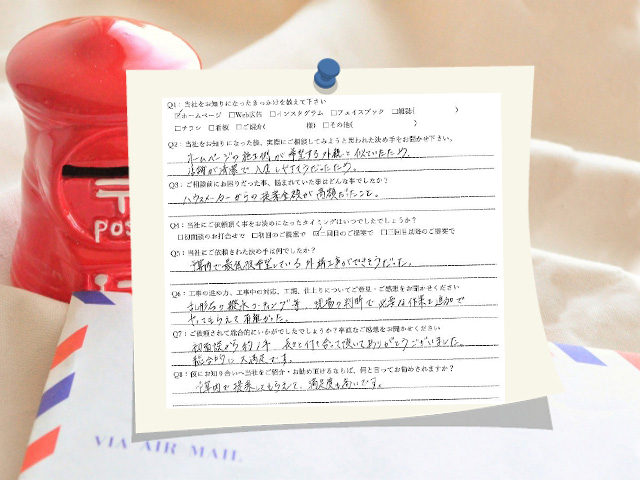 Q1：当社をお知りになったきっかけを教えて下さい
☑ホームページ □Web広告 □インスタグラム □フェイスブック □雑誌( )
□チラシ □看板 □ご紹介( 様) □その他( )
Q2：当社をお知りになった後、実際にご相談してみようと思われた決め手をお聞かせ下さい。
ホームページの施工例が希望する外観と似ていたため。
店舗が清潔で入りしやすそうだったため。
Q3：ご相談前にお困りだった事、悩まれていた事はどんな事でしたか？
ハウスメーカーからの提案金額が高額だったこと。
Q4：当社にご依頼頂く事をお決めになったタイミングはいつでしたでしょうか？
□初面談のお打合せで □初回のご提案で ☑二回目のご提案で □三回目以降のご提案で
Q5：当社にご依頼された決め手は何でしたか？
予算内で最低限希望している外構工事ができそうだった。
Q6：工事の進め方、工事中の対応、工期、仕上りについてご意見・ご感想をお聞かせください
乱形石の撥水コーティング等、現場の判断で必要な作業を追加で
やってもらえて有難かった。
Q7：ご依頼されて総合的にいかがでしたでしょうか？率直なご感想をお聞かせください
初面談から約1年 長々と付き合って頂いてありがとうございました。
総合的に大満足です。
Q8：仮にお知り合いへ当社をご紹介・お勧め頂けるならば、何と言ってお勧めされますか？
予算内で提案してもらえて、満足度も高いです。
POS
VIA AIR MAIL